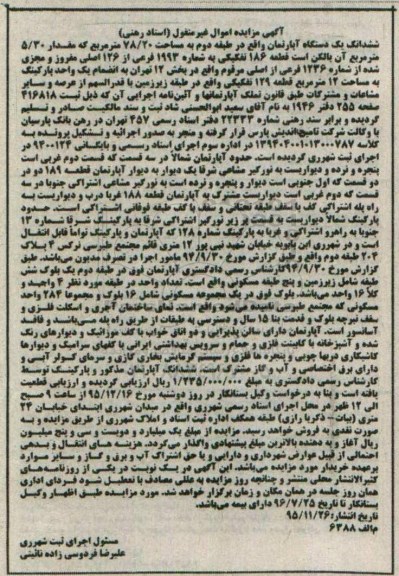 آگهی مزایده اموال غیرمنقول (اسناد رهنی)
ششدانگ یک دستگاه آپارتمان واقع در طبقه دوم به مساحت ۷۸/۲۰ مترمربع که مقدار ۵/۳۰
مترمربع آن بالکن است قطعه ۱۸۶ تفکیکی به شماره ۱۹۹۳ فرعی از ۱۲۶ اصلی مفروز و مجزی
شده از شماره ۱۲۳۶ فرعی از اصلی مرقوم واقع در بخش ۱۲ تهران به انضمام یک واحد پارکینگ
به مساحت ۱۲ مترمربع قطعه ۱۲۹ تفکیکی واقع در طبقه زیرزمین با قدرالسهم از عرصه و سایر
مشاعات و مشترکات طبق قانون تملک آپارتمانها و آئین‌نامه اجرایی آن که ذیل ثبت ۴۱۶۸۱۸
صفحه ۲۵۵ دفتر ۱۹۴۶ به نام آقای سعید ابوالحسنی شاد ثبت و سند مالکیت صادر و تسلیم
گردیده و برابر سند رهنی شماره ۲۲۳۳۳ دفتر اسناد رسمی ۴۵۷ تهران در رهن بانک پارسیان
با وکالت شرکت تامین‌اندیش پارس قرار گرفته و منجر به صدور اجرائیه و تشکیل پرونده به
کلاسه ۱۳۹۴۰۴۰۰۱۰۱۳۰۰۰۷۸۷ در اداره سوم اجرای اسناد رسمی و بایگانی ۹۴۰۰۱۲۴ در
اجرای ثبت شهرری گردیده است. حدود آپارتمان شمالاً در سه قسمت که قسمت دوم غربی است
پنجره و نرده و دیواریست به نورگیر مشاعی شرقا یک دیوار به دیوار آپارتمان قطعه ۱۸۹ دو در
دو قسمت که اول جنوبی است دیوار و پنجره و نرده است به نورگیر مشاعی اشتراکی جنوبا در سه
قسمت که دوم غربی است دیواریست مشترک به آپارتمان قطعه ۱۸۸ غربا درب و دیواریست به
راه پله اشتراکی کف با سقف طبقه تحتانی و سقف با کف طبقه فوقانی اشتراکی است. حدود
پارکینگ شمالاً دیواریست به قسمت زیر نورگیر اشتراکی شرقا به پارکینگ شماره ۱۳
جنوبا به راهرو اشتراکی و غربا به پارکینگ شماره ۱۲۸ که آپارتمان و پارکینگ تواماً قابل انتقال
است و در شهرری ابن بابویه خیابان شهید نبی پور ۱۲ متری قائم مجتمع طبرسی نرگس ۴ پلاک
۲۰۴ طبقه دوم واقع و طبق گزارش مورخ ۹۴/۹/۳۰ مامور اجرا در تصرف مدیون می‌باشد. طبق
گزارش مورخ ۹۴/۹/۳۰ کارشناس رسمی دادگستری آپارتمان فوق در طبقه دوم یک بلوک شش
طبقه شامل زیرزمین و پنج طبقه مسکونی واقع است. تعداد واحد در طبقه مورد نظر ۴ واحد و
کلا ۱۶ واحد می‌باشد. بلوک فوق در یک مجموعه مسکونی شامل ۱۶ بلوک و مجموعاً ۲۸۴ واحد
مسکونی که مجتمع طبرسی نامیده می‌شود واقع است. نمای ساختمان آجری و اسکلت فلزی و
سقف تیرچه بلوک و قدمت بنا ۱۵ سال و دسترسی به طبقات از طریق راه پله می‌باشد و فاقد
آسانسور است. آپارتمان دارای سالن پذیرایی و دو اتاق خواب با کف موزائیک و دیوارهای رنگ
شده و آشپزخانه با کابینت فلزی و حمام و سرویس بهداشتی ایرانی با کفهای سرامیک و دیوارها
کاشیکاری دربها چوبی و پنجره ها فلزی و سیستم گرمایش بخاری گازی و سرمای کولر آبی و
دارای برق اختصاصی و آب و گاز مشترک است. ششدانگ آپارتمان مذکور و پارکینگ توسط
کارشناس رسمی دادگستری به مبلغ ۱/۲۳۵/۰۰۰/۰۰۰ ریال ارزیابی گردیده و ارزیابی قطعیت
یافته است و بنا به درخواست وکیل بستانکار در روز دوشنبه مورخ ۹۵/۱۲/۱۶ از ساعت ۹ صبح
الی ۱۲ ظهر در محل اجرای اسناد رسمی شهرری واقع در میدان شهرری ابتدای خیابان ۲۴
متری (بیات - ذکریا رازی) طبقه همکف اداره ثبت اسناد و املاک شهرری از طریق مزایده و به
صورت نقدی به فروش خواهد رسید. مزایده از مبلغ یک میلیارد و دویست و سی و پنج میلیون
ریال آغاز و به دهنده بالاترین مبلغ پیشنهادی واگذار می‌گردد. هزینه های انتقال و بدهی
احتمالی از قبیل عوارض شهرداری و دارایی و یا حق اشتراک آب و برق و گاز و سایر موارد
برعهده خریدار مورد مزایده می‌باشد. این آگهی در یک نوبت در یکی از روزنامه‌های
کثیرالانتشار محلی منتشر و چنانچه روز مزایده به عللی مصادف با تعطیل شود فردای اداری
همان روز جلسه در همان مکان و زمان برگزار خواهد شد. مورد مزایده طبق اظهار وکیل
بستانکار تا تاریخ ۹۶/۷/۲۵ دارای بیمه می‌باشد.
تاریخ انتشار: ۹۵/۱۱/۲۶
م‌الف ۶۳۸۸
مسئول اجرای ثبت شهرری
علیرضا فردوسی زاده نائینی